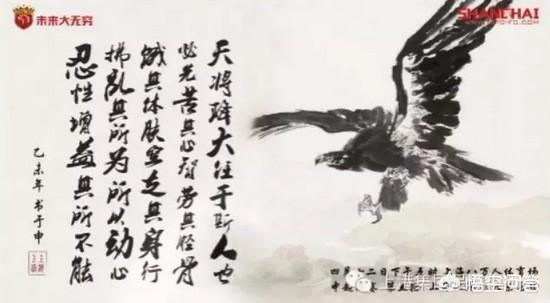 未来大无穷
天将降大任于斯人也
必先苦其心智劳其胫骨
饿其体肤空乏其身行
拂乱其所为所以动心
忍性增益其所不能
乙未年 书于申
二日下午
八万人体育场
上港集团
悟空问答